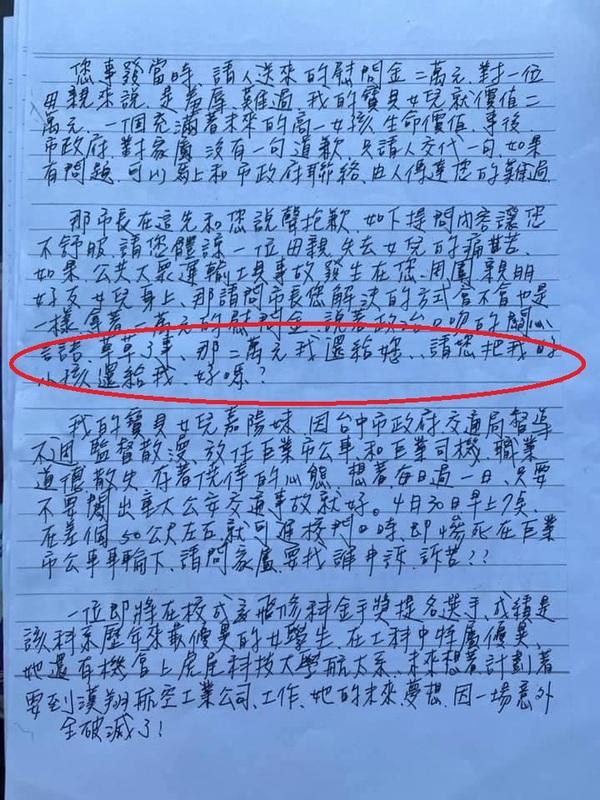 您事發當時、請人送來的慰問金二萬元、對一位
母親來說、是羞辱、難過、我的寶貝女兒就價值二
萬元、一個充滿著未來的高一女孩生命價值、事後、
市政府、對家屬沒有一句道歉、只請人交代一句、如果
有問題、可以馬上和市政府聯絡、由人傳達您的難過、
那市長在這先和您說聲抱歉、如下提問內容讓您
不舒服、請您體諒一位母親、失去女兒的痛苦、
如果、公共大眾運輸工具事故發生在您、周圍親朋
好友女兒身上、那請問市長您解決的方式會不會也是
一樣、拿著二萬元的慰問金、說著政治口吻的關心
言語、草草了事、那二萬元我還給妳、、請您把我的
小孩還給我、好嗎?
我的寶貝女兒嘉陽妹、因台中市政府交通局督導
不週、監督散漫、放任巨業市公車、和巨業司機、職業
道德散失、存著僥倖的心態、想著每日過一日、只要
不要鬧出重大公安交通事故就好。4月30日早上7點、
在差個50公尺左右、就可進校門口時、即慘死在巨業
市公車車輪下、請問家屬、要找誰申訴、訴苦??
一位即將在校式
該科系歷年來最優異的女學生、在工科中特屬優異、
她還有機會上虎尾科技大學航太系、未來想著計劃著
要到漢翔航空工業公司、工作、她的未來、夢想、因一場意外
全破滅了!